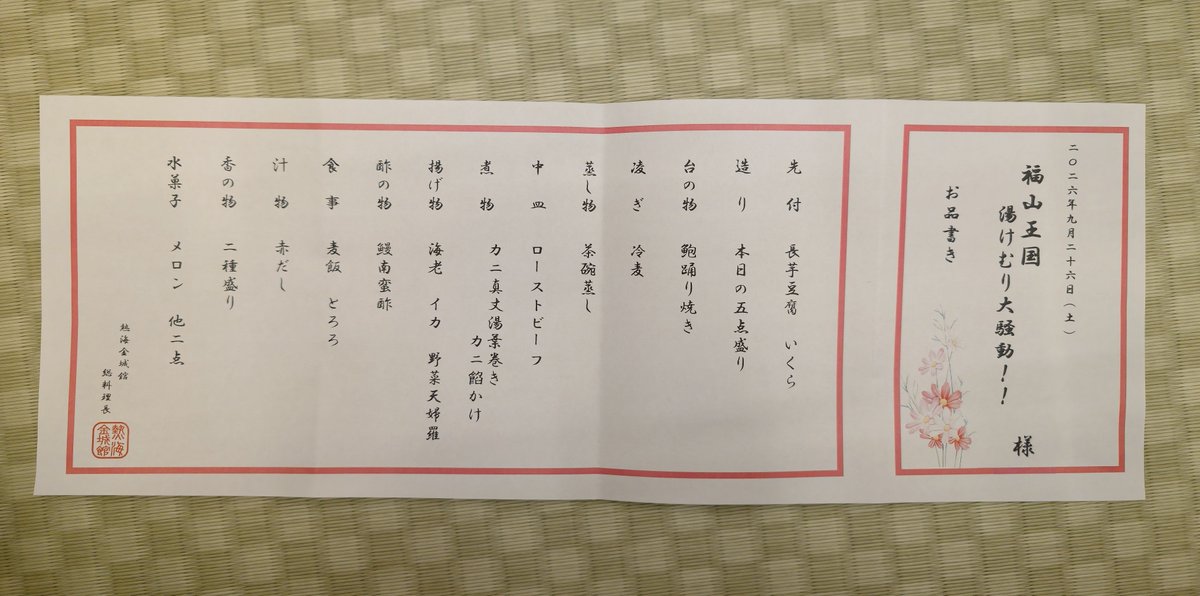 二〇二六年九月二十六日(土)
福山王国
湯けむり大騒動!! 様
お品書き
先付 長芋豆腐 いくら
造り 本日の五点盛り
台の物 鮑踊り焼き
凌ぎ 冷麦
蒸し物 茶碗蒸し
中皿 ローストビーフ
煮物 カニ真丈湯葉巻き
カニ餡かけ
揚げ物 海老 イカ 野菜天婦羅
酢の物 鰻南蛮酢
食事 麦飯 とろろ
汁物 赤だし
香の物 二種盛り
水菓子 メロン 他二点
熱海金城館
総料理長
熱海
金城館